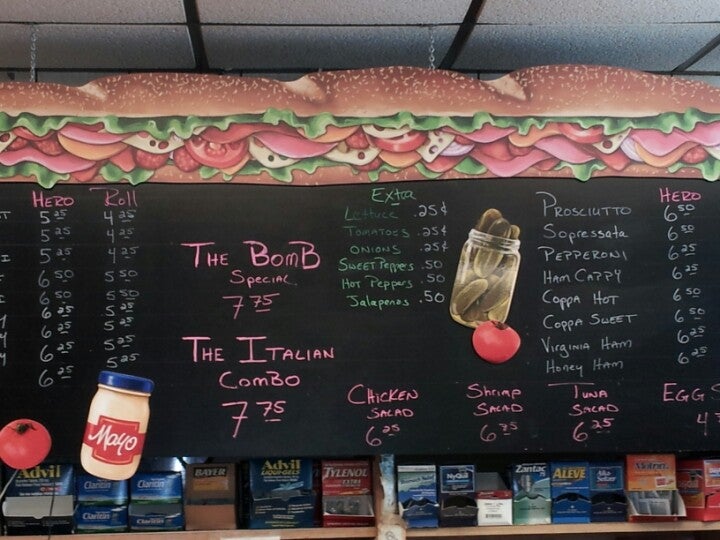 Hero Roll
5 25 4 25
5 25 4 25
5 25 4 25
6 50 5 50
6 50 5 50
6 25 5 25
6 25 5 25
6 25 5 25
6 25
The Bomb
Special
7 75
The Italian
Combo
7 75
Extra
Lettuce .25¢
Tomatoes .25¢
Onions .25¢
Sweet Peppers .50
Hot Peppers .50
Jalapenos .50
Hero
Prosciutto 6 50
Sopressata 6 50
Pepperoni 6 25
Ham Cappy 6 25
Coppa Hot 6 50
Coppa Sweet 6 50
Virginia Ham 6 25
Honey Ham 6 25
Chicken
Salad
6 25
Shrimp
Salad
Tuna
Salad
6 25
Egg S
4
Mayo
Advil
Claritin
Claritin
Claritin
Claritin
BAYER
Advil
LIQUI-GELS
TYLENOL
EXTRA
NyQuil
Zantac
ALEVE
Alka-Seltzer
Motrin